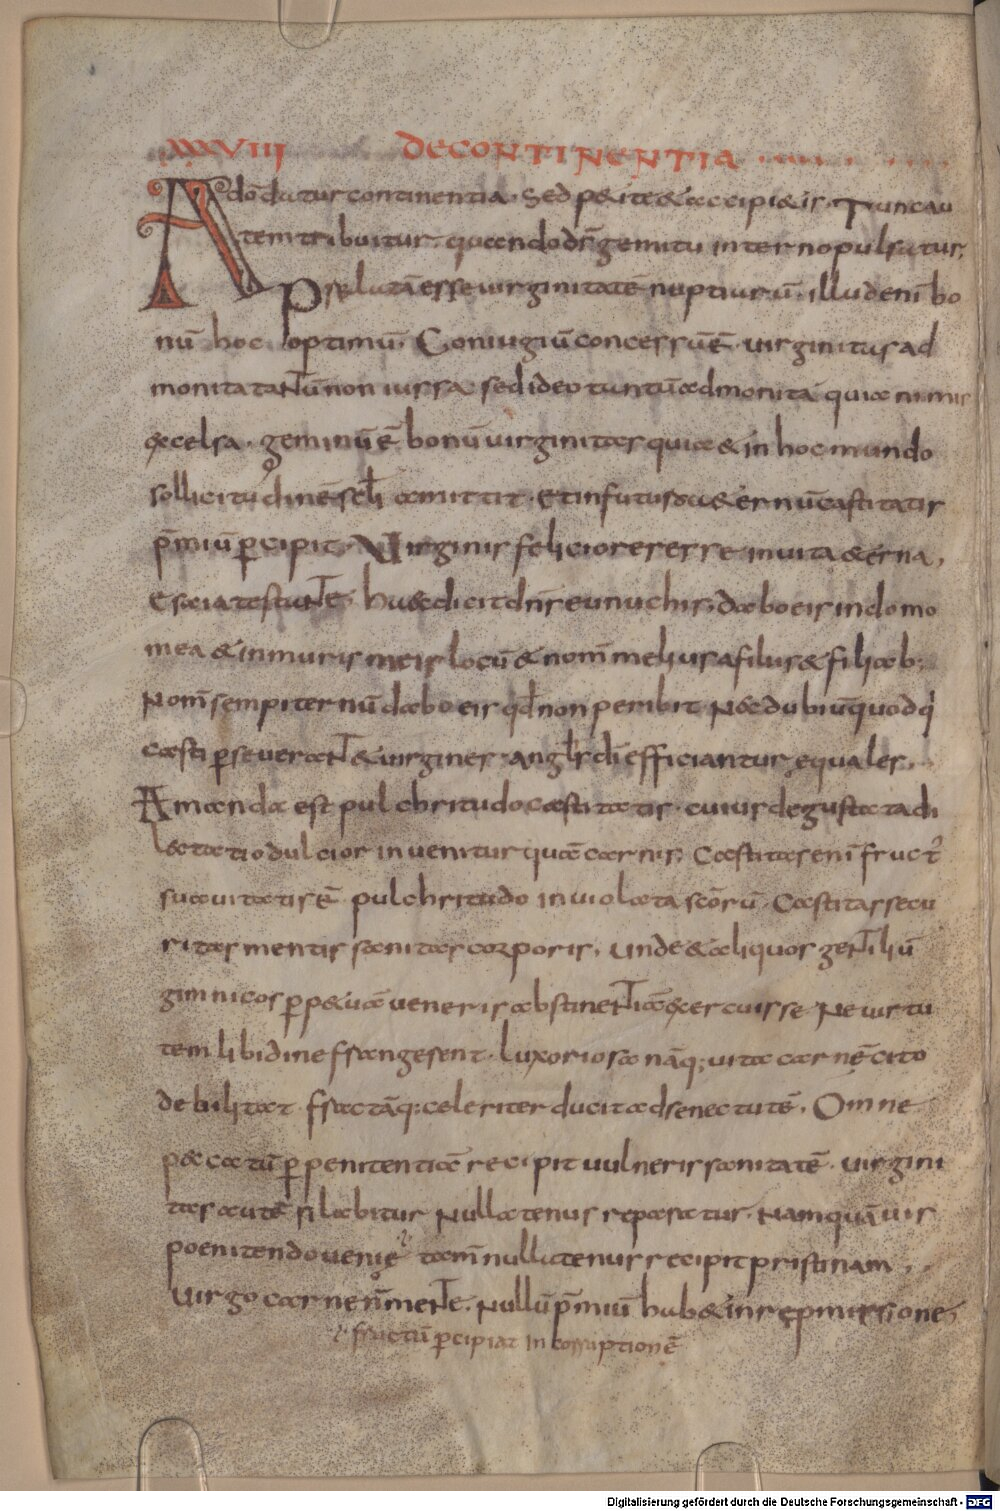 XXXVIIII DE CONTINENTIA
A dō datur continentia. Sed p&ite & accipi&is. Tunc au
tem tribuitur. quando dš gemitu interno pulsatur;
Pręlatā esse uirginitatē nuptiarū. illud enī bo
nū hoc optimū. Coniugiū concessū ē. uirginitas ad
monita tantū non iussa. sed ideo tantū admonita quia nimis
excelsa. geminū ē bonū uirginitas quia & in hoc mundo
sollicitudinē sclī amittit. Et in futuro & ernū castitatis
p̄miū p̄cipit. Uirginis feliciores esse in uita &erna,
Esaia testante. Haec dicit dn̄s eunuchis, dabo eis in domo
mea & in muris meis locū & nom̄ melius a filiis & filiab;
Nom̄ sempiternū dabo eis qd̄ non peribit. Nec dubiū quod q̇
casti p̄seuerant & uirgines. angl̄s dī efficiantur ęquales.
Amanda est pulchritudo castitatis. cuius degustata di
lectatio dulcior inuenitur quā carnis; Castitas enī fruct̓
suauitatis ē pulchritudo inuiolata scōrū. Castitas secu
ritas mentis sanitas corporis. Unde & aliquos gentiliū
gimnicos p̄p&uā ueneris abstinentiā exercuisse. Ne uirtu
tem libidine frangerent. luxoriosa nāq; uita carnē cito
debilitat fractāq; celeriter ducit ad senectutē. Omne
peccatū p̄ penitentiā recipit uulneris sanitatē. uirgini
tas autē si labitur nullatenus reparatur. Nam quāuis
poenitendo uenię tam̄ nullatenus recipit pristinam
Uirgo carne n̄ mente. Nullū p̄miū hab& in repmissione
fructū p̄cipiat incorruptionē
Digitalisierung gefördert durch die Deutsche Forschungsgemeinschaft - DFG